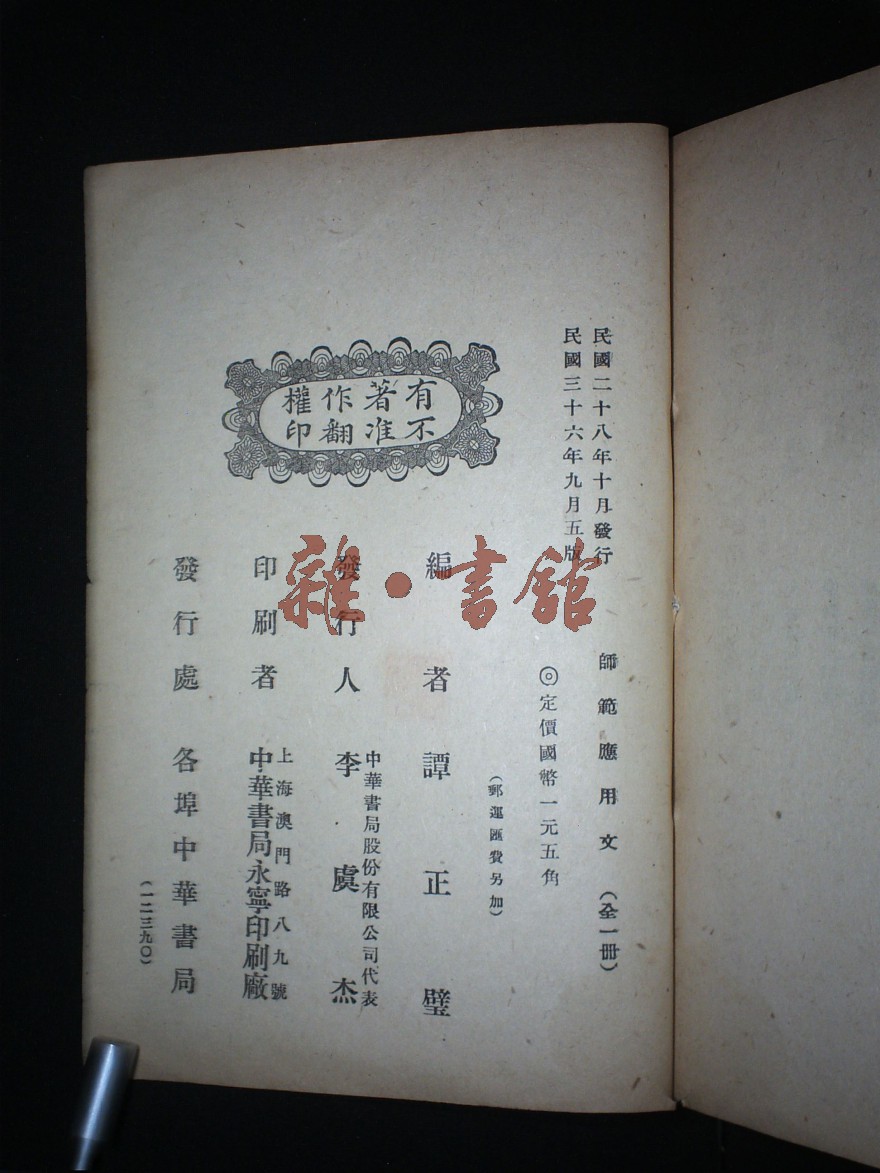 民國二十八年十月發行
民國三十六年九月五版
師範應用文（全一冊）
◎定價國幣一元五角
（郵運匯費另加）
有著作權
不准翻印
編者 譚正璧
發行人 李虞杰
中華書局股份有限公司代表
印刷者
上海澳門路八九號
中華書局永寧印刷廠
發行處 各埠中華書局
（一二三九〇）
雜·書館